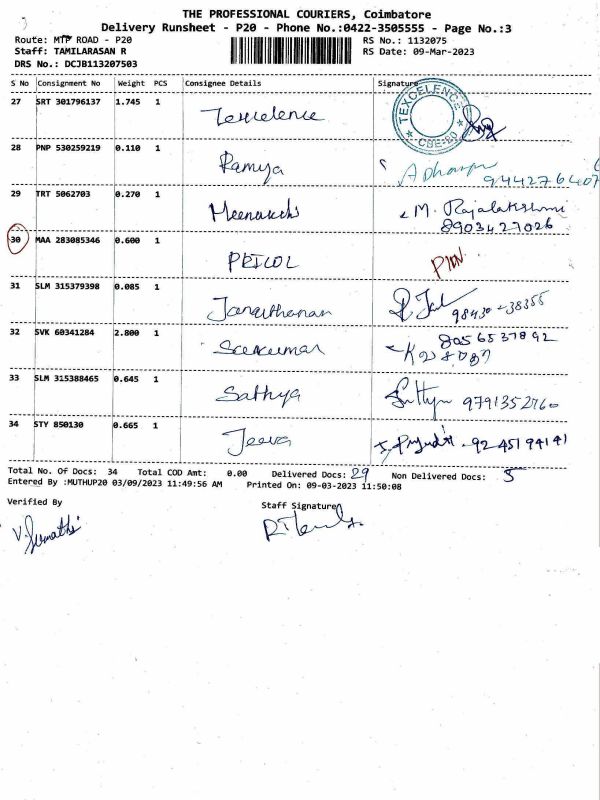 THE PROFESSIONAL COURIERS, Coimbatore
Delivery Runsheet - P20 - Phone No.:0422-3505555 - Page No.:3
Route: MTP ROAD - P20 RS No.: 1132075
Staff: TAMILARASAN R RS Date: 09-Mar-2023
DRS No.: DCJB113207503
S No Consignment No Weight PCS Consignee Details Signature
27 SRT 301796137 1.745 1 Texcelence TEXCELENCE CBE-20
28 PNP 530259219 0.110 1 Ramya 944276407
29 TRT 5062703 0.270 1 Meenakshi M. Rajalakshmi
8903427026
30 MAA 283085346 0.600 1 PRICOL
31 SLM 315379398 0.085 1 Janarthanan 98430-38355
32 SVK 60341284 2.800 1 Sasikumar 8056537892
33 SLM 315388465 0.645 1 Sathya 9791352760
34 STY 850130 0.665 1 Jeeva 9245194141
Total No. Of Docs: 34 Total COD Amt: 0.00 Delivered Docs: 29 Non Delivered Docs: 5
Entered By :MUTHUP20 03/09/2023 11:49:56 AM Printed On: 09-03-2023 11:50:08
Verified By Staff Signature
V. Sumathi